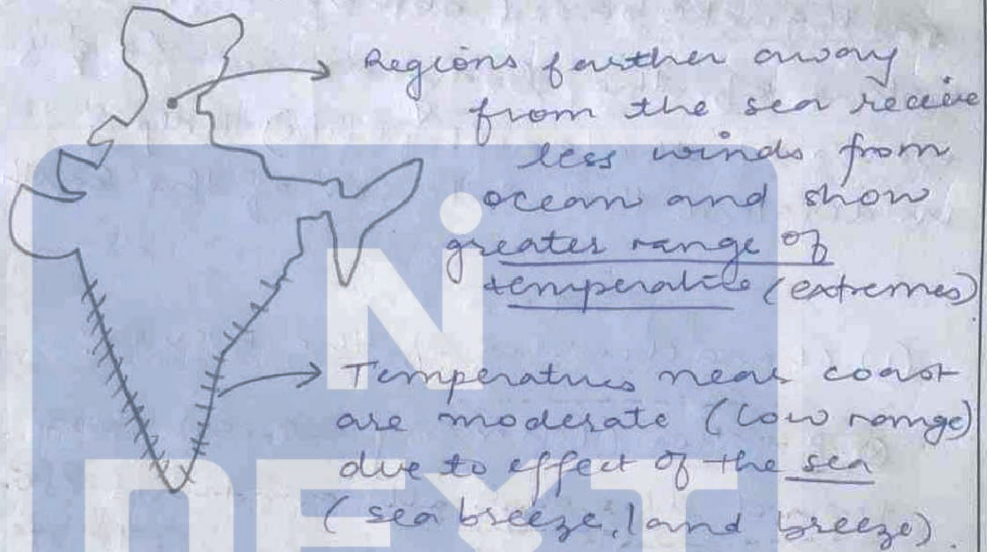 Regions farther away
from the sea receive
less winds from
ocean and show
greater range of
temperature (extremes)
Temperatures near coast
are moderate (low range)
due to effect of the sea
(sea breeze, land breeze)
Ni
NEXT